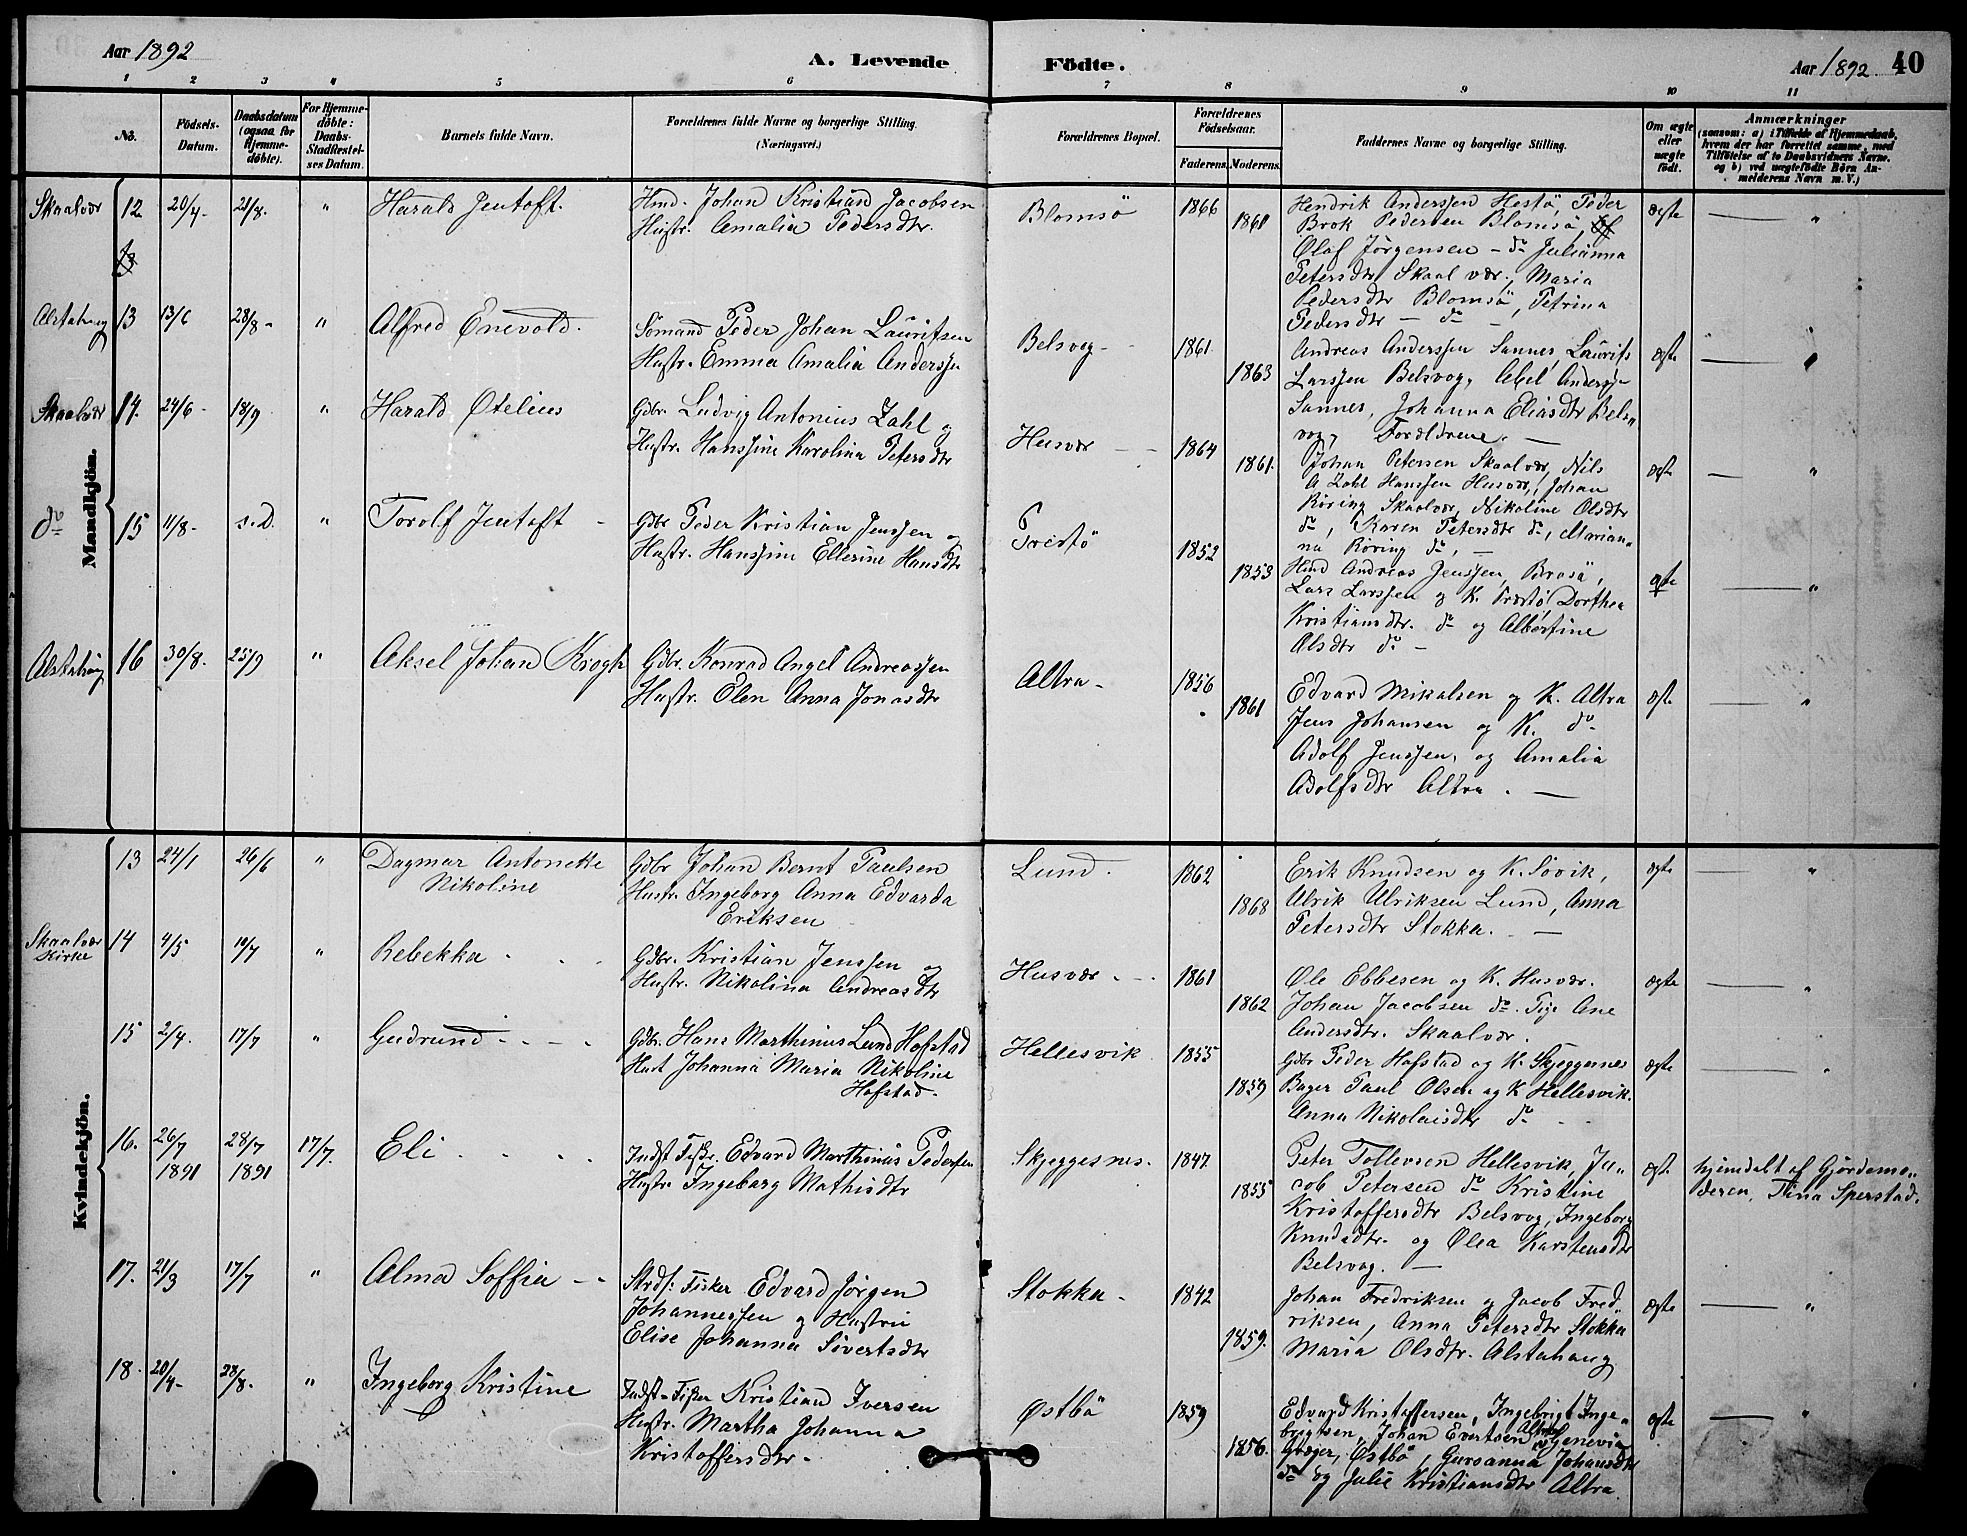 Aar 1892
A. Levende Födte.
Aar 1892 40
1 2 3 4 5 6 7 8 9 10 11
No.
Födsels-Datum.
Daabsdatum (ogsaa for Hjemme-döbte).
For Hjemme-döbte: Daabs-Stadfæstel-ses Datum.
Barnets fulde Navn.
Forældrenes fulde Navne og borgerlige Stilling.
(Næringsvei.)
Forældrenes Bopæl.
Forældrenes Födselsaar.
Faderens. Moderens.
Faddernes Navne og borgerlige Stilling.
Om ægte eller uægte födt.
Anmærkninger
(saasom: a) i Tilfælde af Hjemmedaab,
hvem der har forrettet samme, med
Tilföielse af to Daabsvidners Navne.
og b) ved uægtefödte Börn An-
melderens Navn m. V.)
Mandkjön.
Skaalvær 12 20/4- 21/8. " Harald Jentoft.
Hmd. Johan Kristian Jacobsen
Hustr. Amalia Pedersdtr.
Blomsö 1866 1861
Hendrik Anderssen Hestö, Peder
Brok Pedersen Blomsö,
Olaf Jörgensen - do Julianna
Petersdtr Skaalvær, Maria
Pedersdtr Blomsö, Petrina
Pedersdtr - do -
ægte — "
Alstahaug 13 13/6 28/8- " Alfred Enevold.
Sömand Peder Johan Lauritsen
Hustr. Emma Amalia Anderssen
Belsvog- 1861 1863
Andreas Anderssen Sannes Laurits
Larssen Belsvog, Abel Anders-
Sannes, Johanna Eliasdtr Bels-
vog, Forældrene. —
ægte — "
Skaalvær 14. 24/6- 18/9 " Harald Otelius
Gdbr. Ludvig Antonius Zahl og
Hustr. Hanssine Karolina Petersdtr
Husvær - - 1864 1861.
Johan Petersen Skaalvær, Nils
A Zahl Hanssen Husvær, Johan
Röring Skaalvær, Nikoline Olsdtr
do, Karen Petersdtr do, Marian-
na Röring do, —
ægte — "
do 15 11/8- s.D. " Torolf Jentoft -
Gdbr Peder Kristian Jenssen og
Hustr. Hanssine Ellerine Hansdtr
Præstö 1852 1853
Hmd Andreas Jenssen, Brasö,
Lars Larssen og K. Præstö, Dorthea
Kristiansdtr. do og Albertine
Alsdtr do -
ægte — "
Alstahaug 16 30/8. 25/9 " Aksel Johan Krogh
Gdbr. Konrad Angel Andreassen
Hustr. Elen Anna Jonasdtr
Altra- 1856 1861
Edvard Mikalsen og K. Altra
Jens Johansen og K. do
Adolf Jenssen, og Amalia
Adolfsdtr Altra. —
ægte — "
Kvindekjön.
13 24/1 26/6 " Dagmar Antonette
Nikoline
Gdbr Johan Bernt Paulsen
Hustr. Ingeborg Anna Edvarda
Eriksen
Lund. 1862 1868
Erik Knudsen og K. Sövik,
Ulrik Ulriksen Lund, Anna
Petersdtr Stokka. —
ægte — "
Skaalvær
Kirke
14 4/5 10/7 " Rebekka
Gdbr. Kristian Jenssen og
Hustr. Nikolina Andreasdtr
Husvær. - 1861 1862
Ole Ebbesen og K. Husvær.
Johan Jacobsen do. Pige Ane
Andersdtr. Skaalvær.
ægte — "
15 2/4. 17/7 " Gudrund - - - -
Gdbr. Hans Marthinus Lund Hofstad
Hust Johanna Maria Nikoline
Hofstad.
Hellesvik 1855 1859
Gdbr Peder Hofstad og K. Skjeggesnes
Bager Paul Olsen og K Hellesvik.
Anna Nikolaisdtr do
ægte — "
16. 26/7 1891 28/7 1891 17/7. Eli
Indst Fisker. Edvard Marthinus Pedersen
Hustr. Ingebarg Mathisdtr
Skjeggesnes. 1847. 1855
Peter Tollevsen Hellesvik, Ja-
cob Petersen do Kristine
Kristoffersdtr Belsvog, Ingeborg
Knudsdtr. og Olea Karstensdtr
Belsvog. —
ægte
hjemdøbt af Gjördemo-
deren, Tina Sperstad.
17. 21/3 17/7 " Alma Soffia - -
Strds. Fisker Edvard Jörgen
Johannessen og Hustru
Elise Johanna Sivertsdtr
Stokka - 1842 1859.
Johan Fredriksen og Jacob Fred-
riksen, Anna Petersdtr Stokka
Maria Olsdtr. Alstahaug
ægte — "
18. 20/4- 28/8. " Ingeborg Kristine
Indst-Fisker Kristian Iversen
Hustr. Martha Johanna
Kristoffersdtr.
Østbö 1859 1856.
Edvard Kristoffersen, Ingebrigt Inge-
brigtsen, Johan Evertsen Altra, og Genevia
Greger, Østbö, Guroanna Johansdtr
do og Julie Kristiansdtr Altra
ægte — "